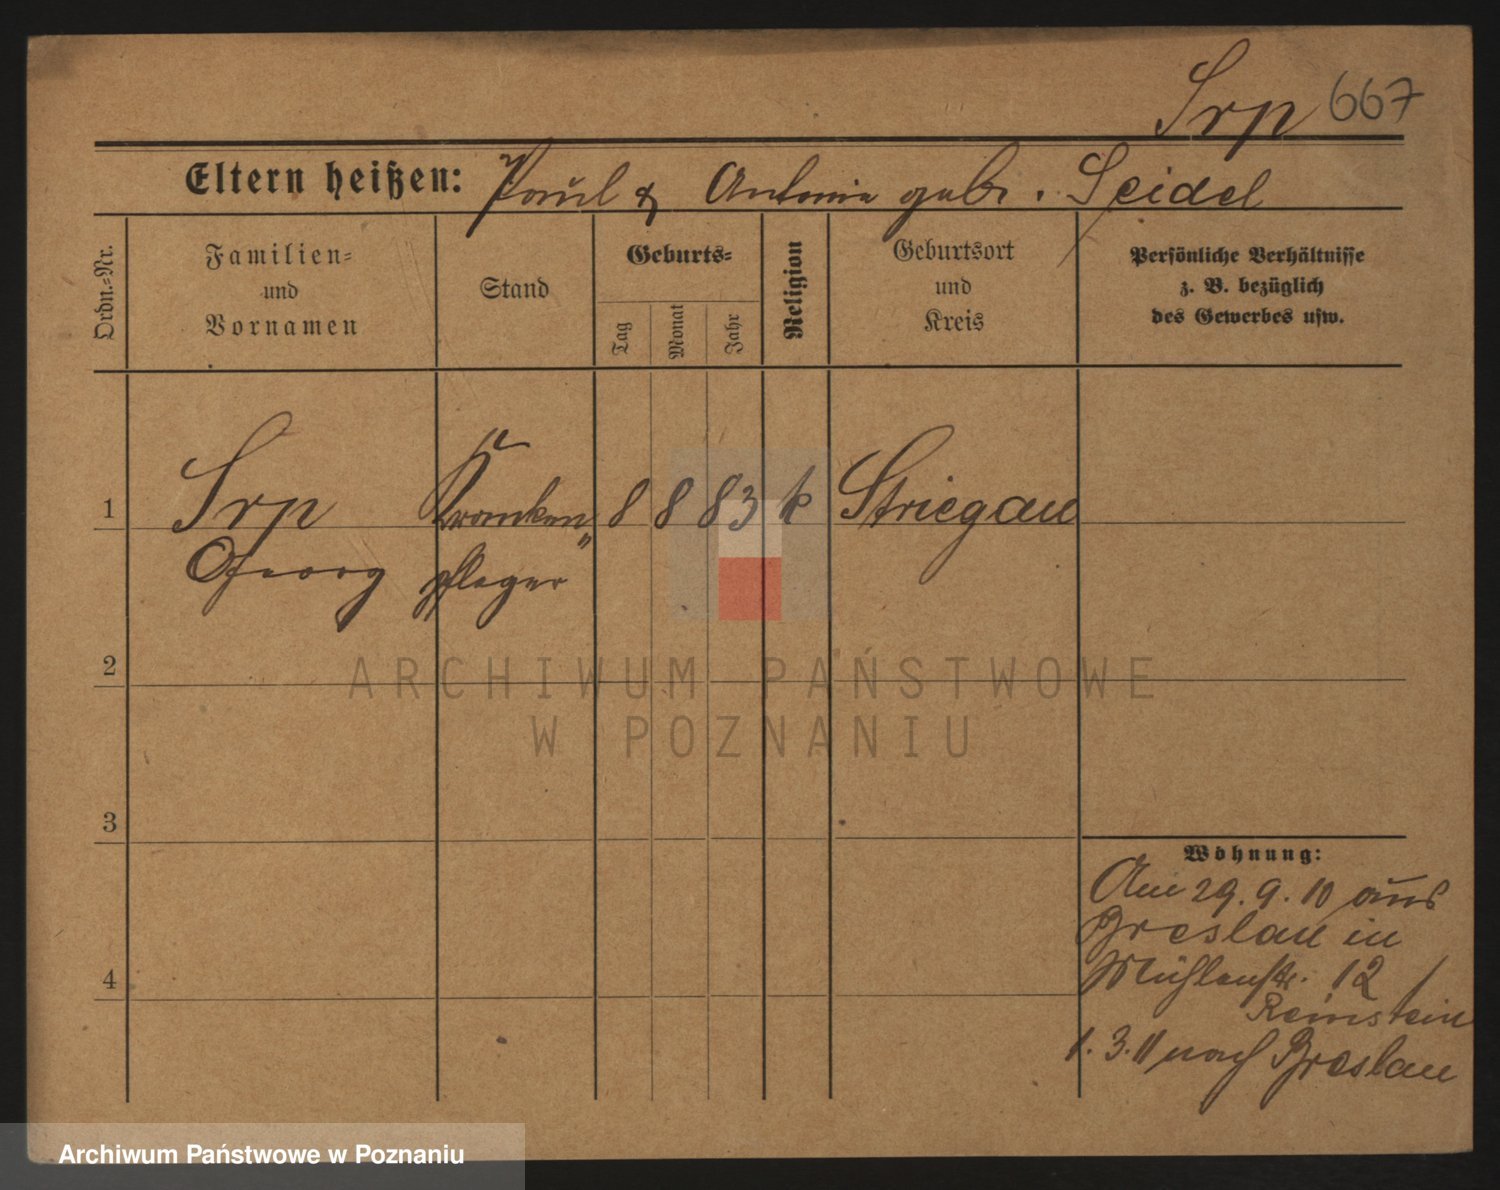 Srp 667
Eltern heißen: Paul & Antonie geb. Seidel
Ordn.-Nr.
Familien-
und
Vornamen
Stand
Geburts-
Tag
Monat
Jahr
Religion
Geburtsort
und
Kreis
Persönliche Verhältnisse
z. B. bezüglich
des Gewerbes usw.
1 Srp Kranken 8 8 83 k Striegau
Georg pfleger
2
ARCHIWUM PAŃSTWOWE
W POZNANIU
3
Wohnung:
Am 29.9.10 aus
Breslau in
Mühlenstr. 12
4
Reinstein
1.3.11 nach Breslau
Archiwum Państwowe w Poznaniu